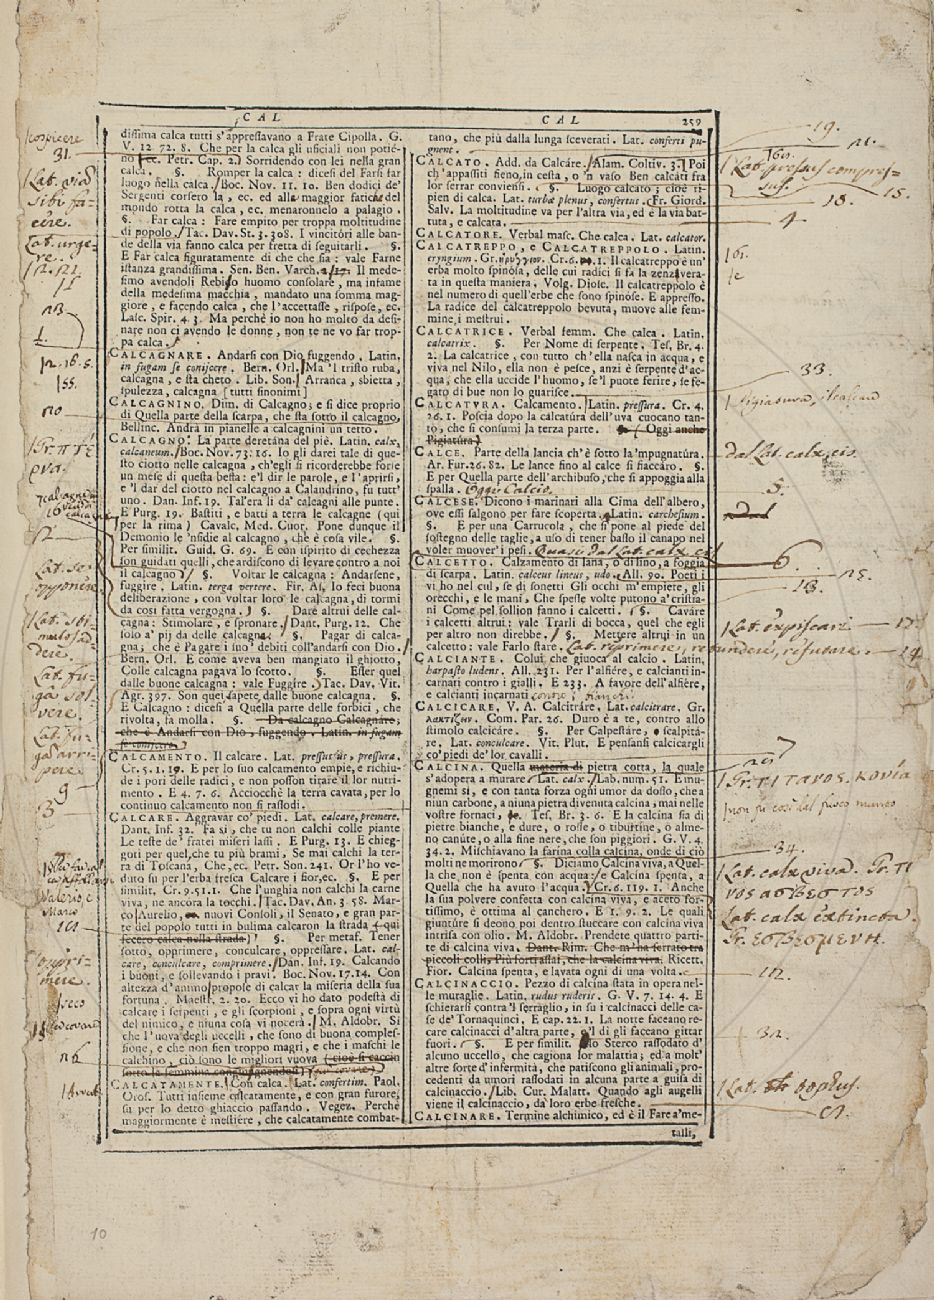 CAL
CAL
259
dissima calca tutti s'appressavano a Frate Cipolla. G.
V. 12 72. 8. Che per la calca gli uficiali non potié-
no ec. Petr. Cap. 2. Sorridendo con lei nella gran
calca. §. Romper la calca: dicesi del Farsi far
luogo nella calca. Boc. Nov. 11. 10. Ben dodici de'
Sergenti corsero là, ec. ed alla maggior fatica del
mondo rotta la calca, ec. menaronnelo a palagio.
§. Far calca: Fare empito per troppa moltitudine
di popolo. Tac. Dav. St. 3. 308. I vincitóri alle ban-
de della via fanno calca per fretta di seguitarli. §.
E Far calca figuratamente di che che sia: vale Farne
istanza grandissima. Sen. Ben. Varch. 2. Il mede-
simo avendoli Rebilo huomo consolare, ma infame
della medesima macchia, mandato una somma mag-
giore, e facendo calca, che l'accettasse, rispose, ec.
Lasc. Spir. 4. 3. Ma perché io non ho molto da desi-
nare non ci avendo le donne, non te ne vo far trop-
pa calca.
CALCAGNARE. Andarsi con Dio fuggendo. Latin.
in fugam se conijcere. Bern. Orl. Ma 'l tristo ruba,
calcagna, e sta cheto. Lib. Son. Arranca, sbietta,
spulezza, calcagna [tutti sinonimi]
CALCAGNINO. Dim. di Calcagno; e si dice proprio
di Quella parte della scarpa, che sta sotto il calcagno.
Bellinc. Andrà in pianelle a calcagnini un tetto.
CALCAGNO. La parte deretána del piè. Latin. calx,
calcaneum. Boc. Nov. 73. 16. Io gli darei tale di que-
sto ciotto nelle calcagna, ch'egli si ricorderebbe forse
un mese di questa besta: e 'l dir le parole, e l'aprirsi,
e 'l dar del ciotto nel calcagno a Calandrino, fu tutt'
uno. Dan. Inf. 19. Tal'era li da' calcagni alle punte.
E Purg. 19. Bastiti, e batti a terra le calcagne (qui
per la rima) Cavalc. Med. Cuor. Pone dunque il
Demonio le 'nsidie al calcagno, che è cosa vile. §.
Per similit. Guid. G. 69. E con ispirito di cechezza
son guidati quelli, che ardiscono di levare contro a noi
il calcagno. §. Voltar le calcagna: Andarsene,
fuggire. Latin. terga vertere. Fir. As. Io feci buona
deliberazione, con voltar loro le calcagna, di tormi
da cosi fatta vergogna. §. Dare altrui delle cal-
cagna: Stimolare, e spronare. Dant. Purg. 12. Che
solo a' pij da delle calcagne. §. Pagar di calca-
gna; che è Pagare i suo' debiti coll'andarsi con Dio.
Bern. Orl. E come aveva ben mangiato il ghiotto,
Colle calcagna pagava lo scotto. §. Esser quel
dalle buone calcagna: vale Fuggire. Tac. Dav. Vit.
Agr. 397. Son quei sapete, dalle buone calcagna. §.
E Calcagno: dicesi a Quella parte delle forbici, che
rivolta, fa molla. §. Da calcagno Calcagnare;
che è Andarsi con Dio, fuggendo. Latin. in fugam
se conijcere.
CALCAMENTO. Il calcare. Lat. pressus us, pressura.
Cr. 5. 1. 19. E per lo suo calcamento empie, e richiu-
de i pori delle radici, e non posson titare il lor nutri-
mento. E 4. 7. 6. Acciocchè la terra cavata, per lo
continuo calcamento non si rassodi.
CALCARE. Aggravar co' piedi. Lat. calcare, premere.
Dant. Inf. 32. Fa si, che tu non calchi colle piante
Le teste de' fratei miseri lassi. E Purg. 13. E chieg-
goti per quel, che tu più brami, Se mai calchi la ter-
ra di Toscana, Che, ec. Petr. Son. 241. Or l'ho ve-
duto su per l'erba fresca Calcare i fior, ec. §. E per
similit. Cr. 9. 51. 1. Che l'unghia non calchi la carne
viva, ne ancora la tocchi. Tac. Dav. An. 3. 58. Mar-
co Aurelio, nuovi Consoli, il Senato, e gran par-
te del popolo tutti in bulima calcaron la strada (qui
fecero calca nella strada) §. Per metaf. Tener
sotto, opprimere, conculcare, oppressare. Lat. cal-
care, conculcare, comprimere. Dan. Inf. 19. Calcando
i buoni, e sollevando i pravi. Boc. Nov. 17. 14. Con
altezza d'animo propose di calcar la miseria della sua
fortuna. Maestr. 2. 20. Ecco vi ho dato podestà di
calcare i serpenti, e gli scorpioni, e sopra ogni virtù
del nimico, e niuna cosa vi nocerà. M. Aldobr. Si
che l'uova degli uccelli, che sono di buona comples-
sione, e che non sien troppo magri, e che i maschi le
calchino, ciò sono le migliori vuova (cioè si caccin
sotto la femmina congiugnendosi)
CALCATAMENTE. Con calca. Lat. confertim. Paol.
Oros. Tutti insieme calcatamente, e con gran furore,
su per lo detto ghiaccio passando. Vegez. Perchè
maggiormente è mestière, che calcatamente combat-
tano, che più dalla lunga sceverati. Lat. conferti pu-
gnent.
CALCATO. Add. da Calcáre. Alam. Coltiv. 3. Poi
ch'appassiti fieno, in cesta, o 'n vaso Ben calcati fra
lor serrar conviensi. §. Luogo calcato; cioè ri-
pien di calca. Lat. turbæ plenus, confertus. Fr. Giord.
Salv. La moltitudine va per l'altra via, ed è la via bat-
tuta, e calcata.
CALCATORE. Verbal masc. Che calca. Lat. calcator.
CALCATREPPO, e CALCATREPPOLO. Latin.
eryngium. Gr. ἠρύγγιον. Cr. 6. 1. Il calcatreppo è un'
erba molto spinosa, delle cui radici si fa la zenzavera-
ta in questa maniera. Volg. Diosc. Il calcatréppolo è
nel numero di quell'erbe che sono spinose. E appresso.
La radice del calcatreppol bevuta, muove alle fem-
mine i mestrui.
CALCATRICE. Verbal femm. Che calca. Latin.
calcatrix. §. Per Nome di serpente. Tes. Br. 4.
2. La calcatrice, con tutto ch'ella nasca in acqua, e
viva nel Nilo, ella non è pesce, anzi è serpente d'ac-
qua; che ella uccide l'huomo, se'l puote ferire, se fe-
gato di bue non lo guarisce.
CALCATVRA. Calcamento. Latin. pressura. Cr. 4.
26. 1. Poscia dopo la calcatura dell'uva cuocano tan-
to, che si consumi la terza parte. (Oggi anche
Pigiatura)
CALCE. Parte della lancia ch'è sotto la 'mpugnatura.
Ar. Fur. 26. 82. Le lance fino al calce si fiaccáro. §.
E per Quella parte dell'archibuso, che si appoggia alla
spalla. Oggi Calcio.
CALCESE. Dicono i marinari alla Cima dell'albero,
ove essi salgono per fare scoperta. Latin. carchesium.
§. E per una Carrucola, che si pone al piede del
sostegno delle taglie, a uso di tener basso il canapo nel
voler muover'i pesi. Quasi dal Lat. calx, cis
CALCETTO. Calzamento di lana, o di lino, a foggia
di scarpa. Latin. calceus lineus, udo. All. 90. Poeti i
vi ho nel cul, se di sonetti Gli occhi m'empiere, gli
orecchi, e le mani, Che spesse volte putono a' cristia-
ni Come pel sollion fanno i calcetti. §. Caváre
i calcetti altrui: vale Trarli di bocca, quel che egli
per altro non direbbe. §. Mettere altrui in un
calcetto: vale Farlo stare. Lat. reprimere, retundere, refutare.
CALCIANTE. Colui, che giuoca al calcio. Latin.
harpasto ludens. All. 231. Per l'alfiére, e calcianti in-
carnati contro i gialli. E 233. A favore dell'alfiére,
e calcianti incarnati contro i bianchi.
CALCICARE, V. A. Calcitráre. Lat. calcitrare. Gr.
λακτίζειν. Com. Par. 26. Duro è a te, contro allo
stimolo calcicáre. §. Per Calpestáre, e scalpitá-
re. Lat. conculcare. Vit. Plut. E pensansi calcicargli
co' piedi de' lor cavalli.
CALCINA. Quella materia di pietra cotta, la quale
s'adopera a murare. Lat. calx. Lab. num. 51. E inu-
gnemi si, e con tanta forza ogni umor da dosso, che a
niun carbone, a niuna pietra divenuta calcina, mai nelle
vostre fornaci, Tes. Br. 3. 6. E la calcina sia di
pietre bianche, e dure, o rosse, o tiburtine, o alme-
no canúte, o alla fine nere, che son piggiori. G. V. 4.
34. 2. Mischiavano la farina colla calcina, onde di ciò
molti ne morirono. §. Diciamo Calcina viva, a Quel-
la che non è spenta con acqua: e Calcina spenta, a
Quella che ha avuto l'acqua. Cr. 6. 119. 1. Anche
la sua polvere confetta con calcina viva, e aceto for-
tissimo, è ottima al canchero. E 1. 9. 2. Le quali
giunture si deono poi dentro stuccare con calcina viva
intrisa con olio. M. Aldobr. Prendete quattro parti-
te di calcina viva. Dant. Rim. Che m'ha serrato tra
piccoli colli, Più forti assai, che la calcina vira. Ricett.
Fior. Calcina spenta, e lavata ogni di una volta.
CALCINACCIO. Pezzo di calcina stata in opera nel-
le muraglie. Latin. rudus ruderis. G. V. 7. 14. 4. E
schierarsi contra 'l serraglio, in su i calcinacci delle ca-
se de' Tornaquinci. E cap. 22. 1. La notte faceano re-
care calcinacci d'altra parte, e 'l di gli faccano gittar
fuori. §. E per similit. Lo Sterco rassodato d'
alcuno uccello, che cagiona lor malattia; ed a molt'
altre sorte d'infermità, che patiscono gli animali, pro-
cedenti da umori rassodati in alcuna parte a guisa di
calcinaccio. Lib. Cur. Malatt. Quando agli augelli
viene il calcinaccio, da' loro erbe fresche.
CALCINARE. Termine alchimico, ed è il Fare a' me-
talli,
31.
Lat. viā
sibi fa-
cere.
Lat. urge-
re.
12. 16. 5.
155.
Lat. sti-
mulos ad-
dere.
Lat. fu-
gā sol-
vere.
Lat. fu-
gā arri-
pere.
9
3
Valerio e
Marco
101
oppri-
mere.
19.
21.
Lat. pressus compres-
sus.
15.
18.
4
33.
dal Lat. calx, cis.
5.
6
13.
Lat. expiscari
17
14
Gr. ΤΙΤΑΝΟS. κονία
34.
Lat. calx viva. Gr. ΤΙ
ΤΑΝΟS ΑΣΒΕΣΤΟS
Lat. calx extincta.
Gr. ΕΣΒΕΣΜΕΝΗ.
32.
10